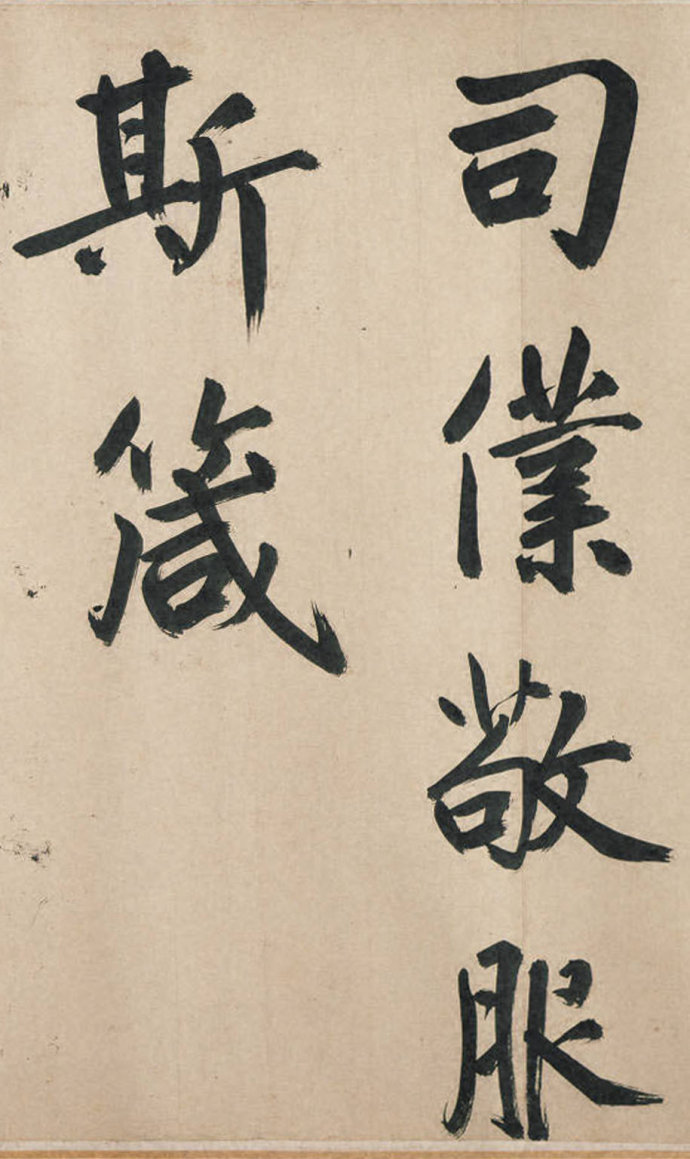 司僕敬服
斯箴